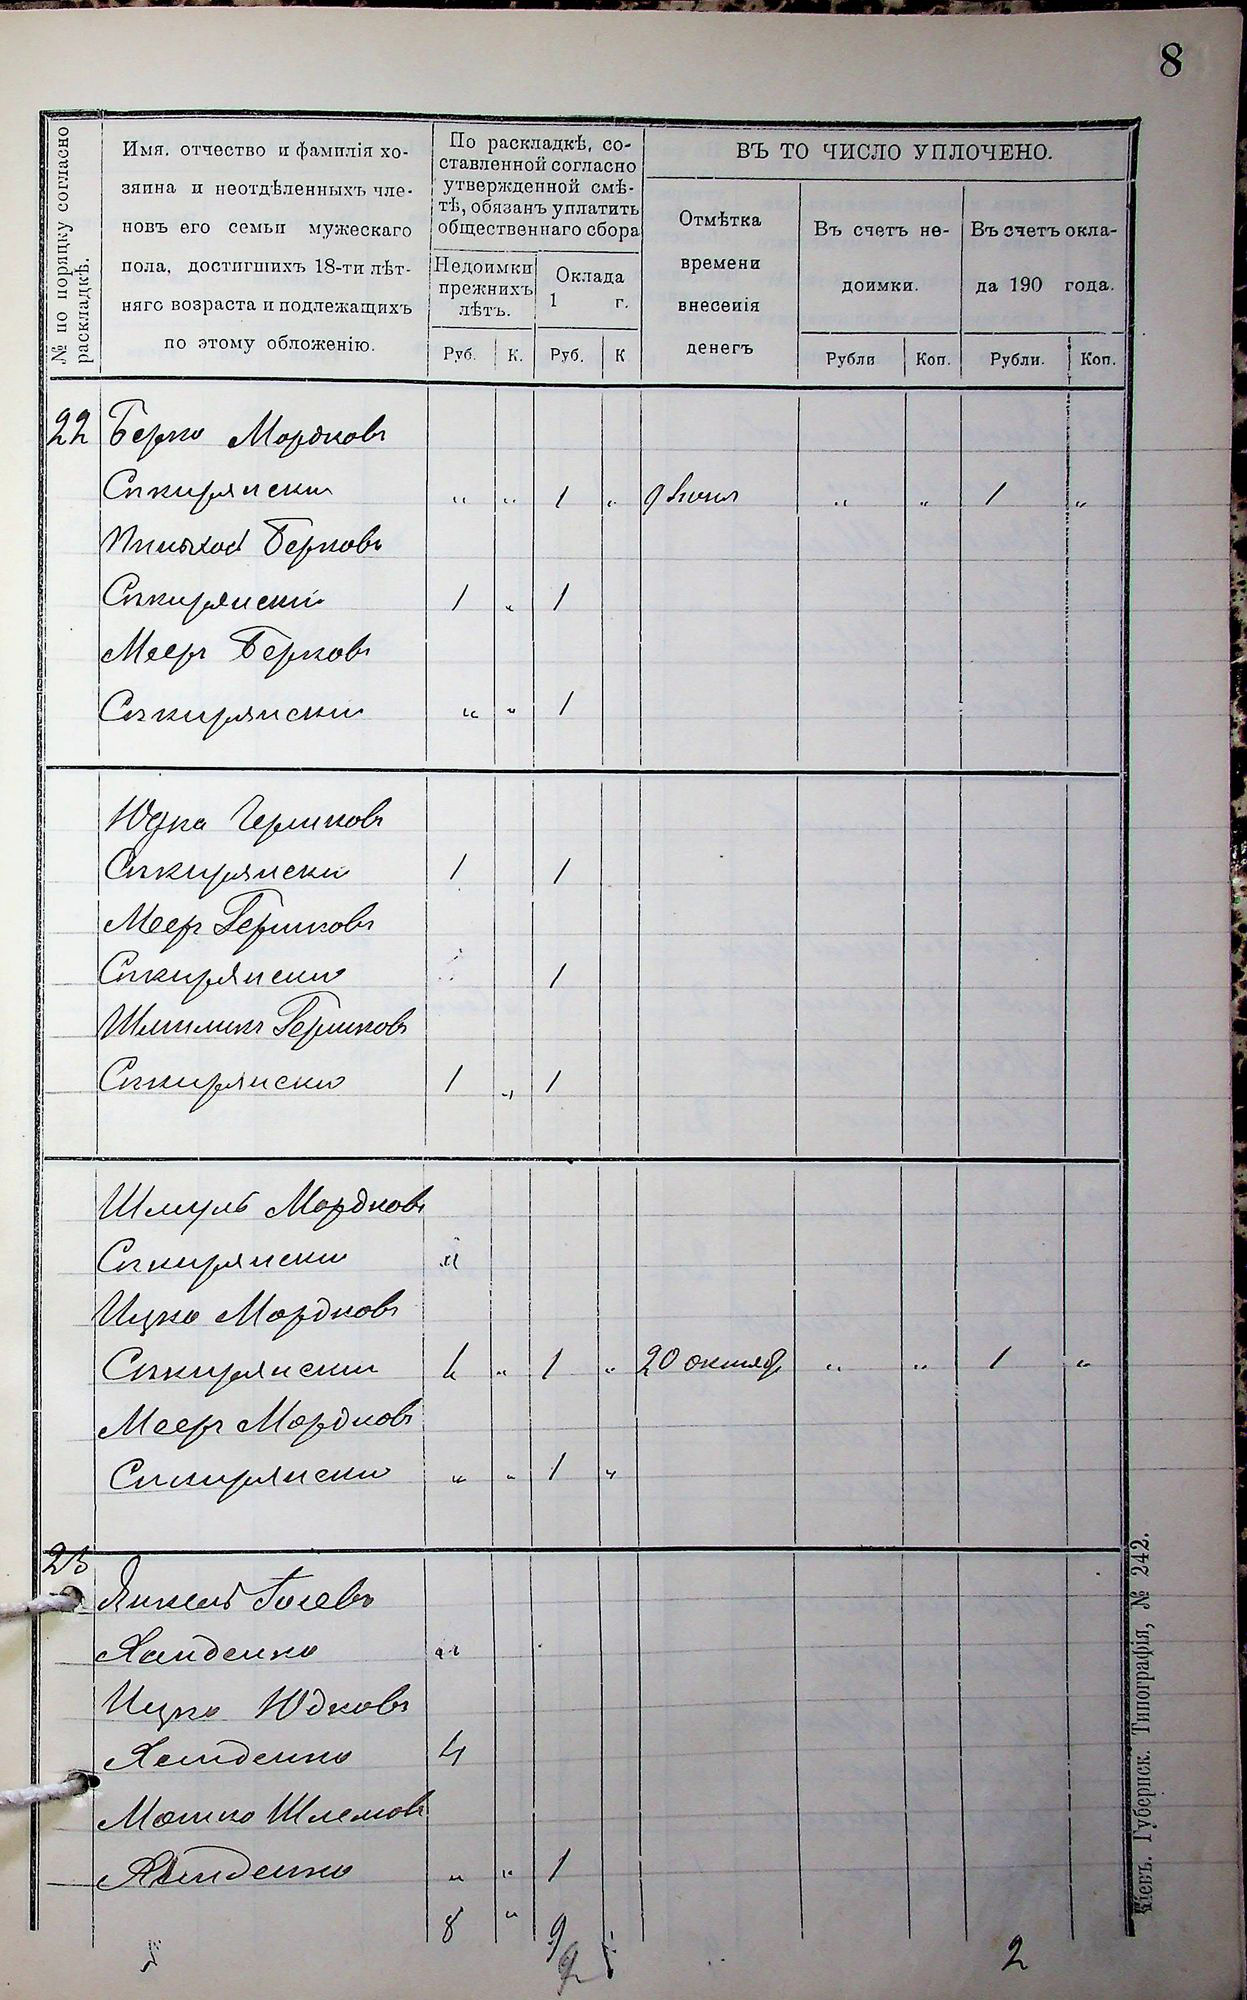 8
№ по порядку согласно
раскладкѣ.
Имя, отчество и фамилія хо-
зяина и неотдѣленныхъ чле-
новъ его семьи мужескаго
пола, достигшихъ 18-ти лѣт-
няго возраста и подлежащихъ
по этому обложенію.
По раскладкѣ, со-
ставленной согласно
утвержденной смѣ-
тѣ, обязанъ уплатить
общественнаго сбора
Недоимки
прежнихъ
лѣтъ.
Оклада
1 г.
Руб. К. Руб. К
ВЪ ТО ЧИСЛО УПЛОЧЕНО.
Отмѣтка
времени
внесенія
денегъ
Въ счетъ не-
доимки.
Въ счетъ окла-
да 190 года.
Рубли Коп. Рубли. Коп.
22 Берко Мордковъ
Сѣкирянски " " 1 " 9 Іюня " " 1 "
Берковъ
Сѣкирянски 1 " 1
Мееръ Берковъ
Сѣкирянски " " 1
Юдка Гершковъ
Сѣкирянски 1 1
Мееръ Гершковъ
Сѣкирянски 1
Шмиликъ Гершковъ
Сѣкирянски 1 " 1
Шмуль Мордковъ
Сѣкирянски "
Ицко Мордковъ
Сѣкирянски " 1 " 20 октяб " " 1 "
Мееръ Мордковъ
Сѣкирянски " " 1 "
23
Янкель
"
Ицко Юдковъ
4
Мошко Шлемовъ
" " 1
8 " 9
2
Кіевъ. Губернск. Типографія, № 242.